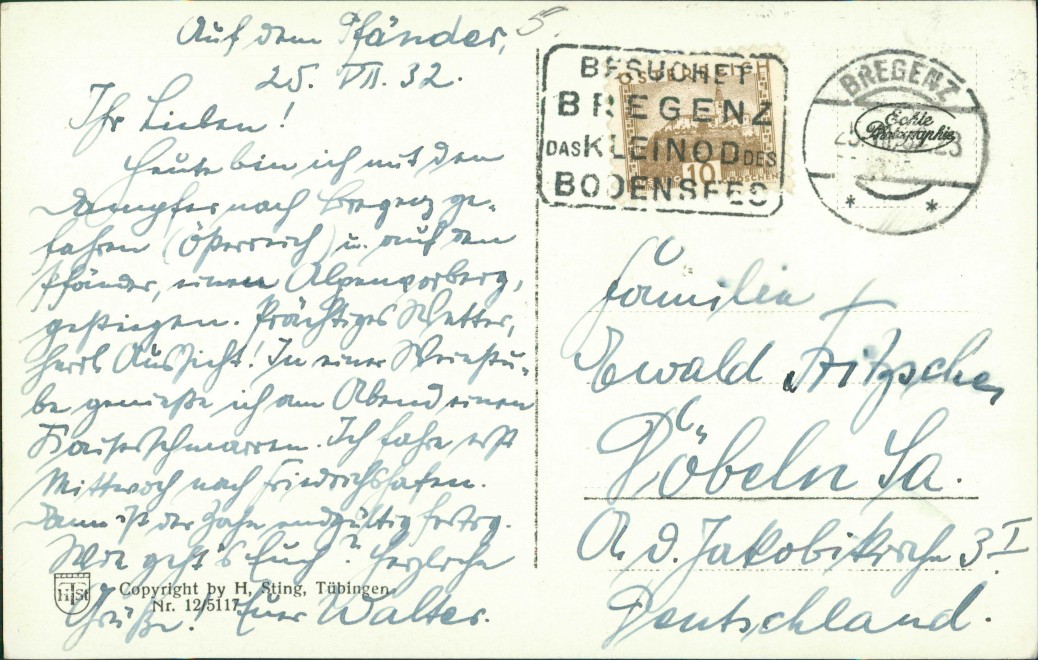 Auf dem Pfänder,
25. VII. 32.
Ihr Lieben!
Heute bin ich mit dem
Dampfer nach Bregenz ge-
fahren (Österreich) u. auf den
Pfänder, einen Alpenvorberg,
gestiegen. Prächtiges Wetter,
herrl. Aussicht! In einer Weinstu-
be genieße ich am Abend einen
Kaiserschmarren. Ich fahre erst
Mittwoch nach Friedrichshafen.
Dann ist der Zahn endgültig fertig.
Wie geht's Euch? Herzliche
Grüße! Euer Walter.
Copyright by H. Sting, Tübingen
Nr. 12/5117
HSt
5.
BESUCHET
BREGENZ
DAS KLEINOD DES
BODENSEES
ÖSTERREICH
10
GROSCHEN
BREGENZ
Echte
Photographie
Familie
Ewald Fritzsche,
Döbeln Sa.
A. d. Jakobikirche 3 I
Deutschland.